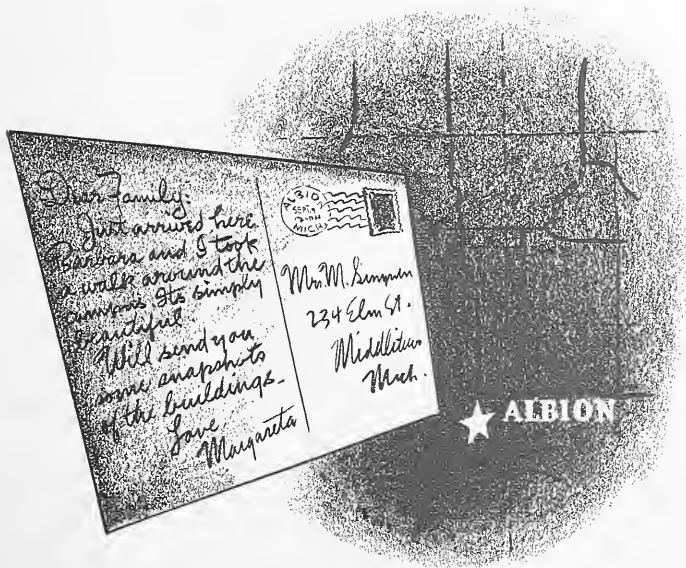 Dear Family:
Just arrived here.
Barbara and I took
a walk around the
campus. Its simply
beautiful.
Will send you
some snapshots
of the buildings.
Love
Margareta
ALBIO
SEP
MICH
Mrs. M.
234 Elm St.
Middletown
Mich.
ALBION